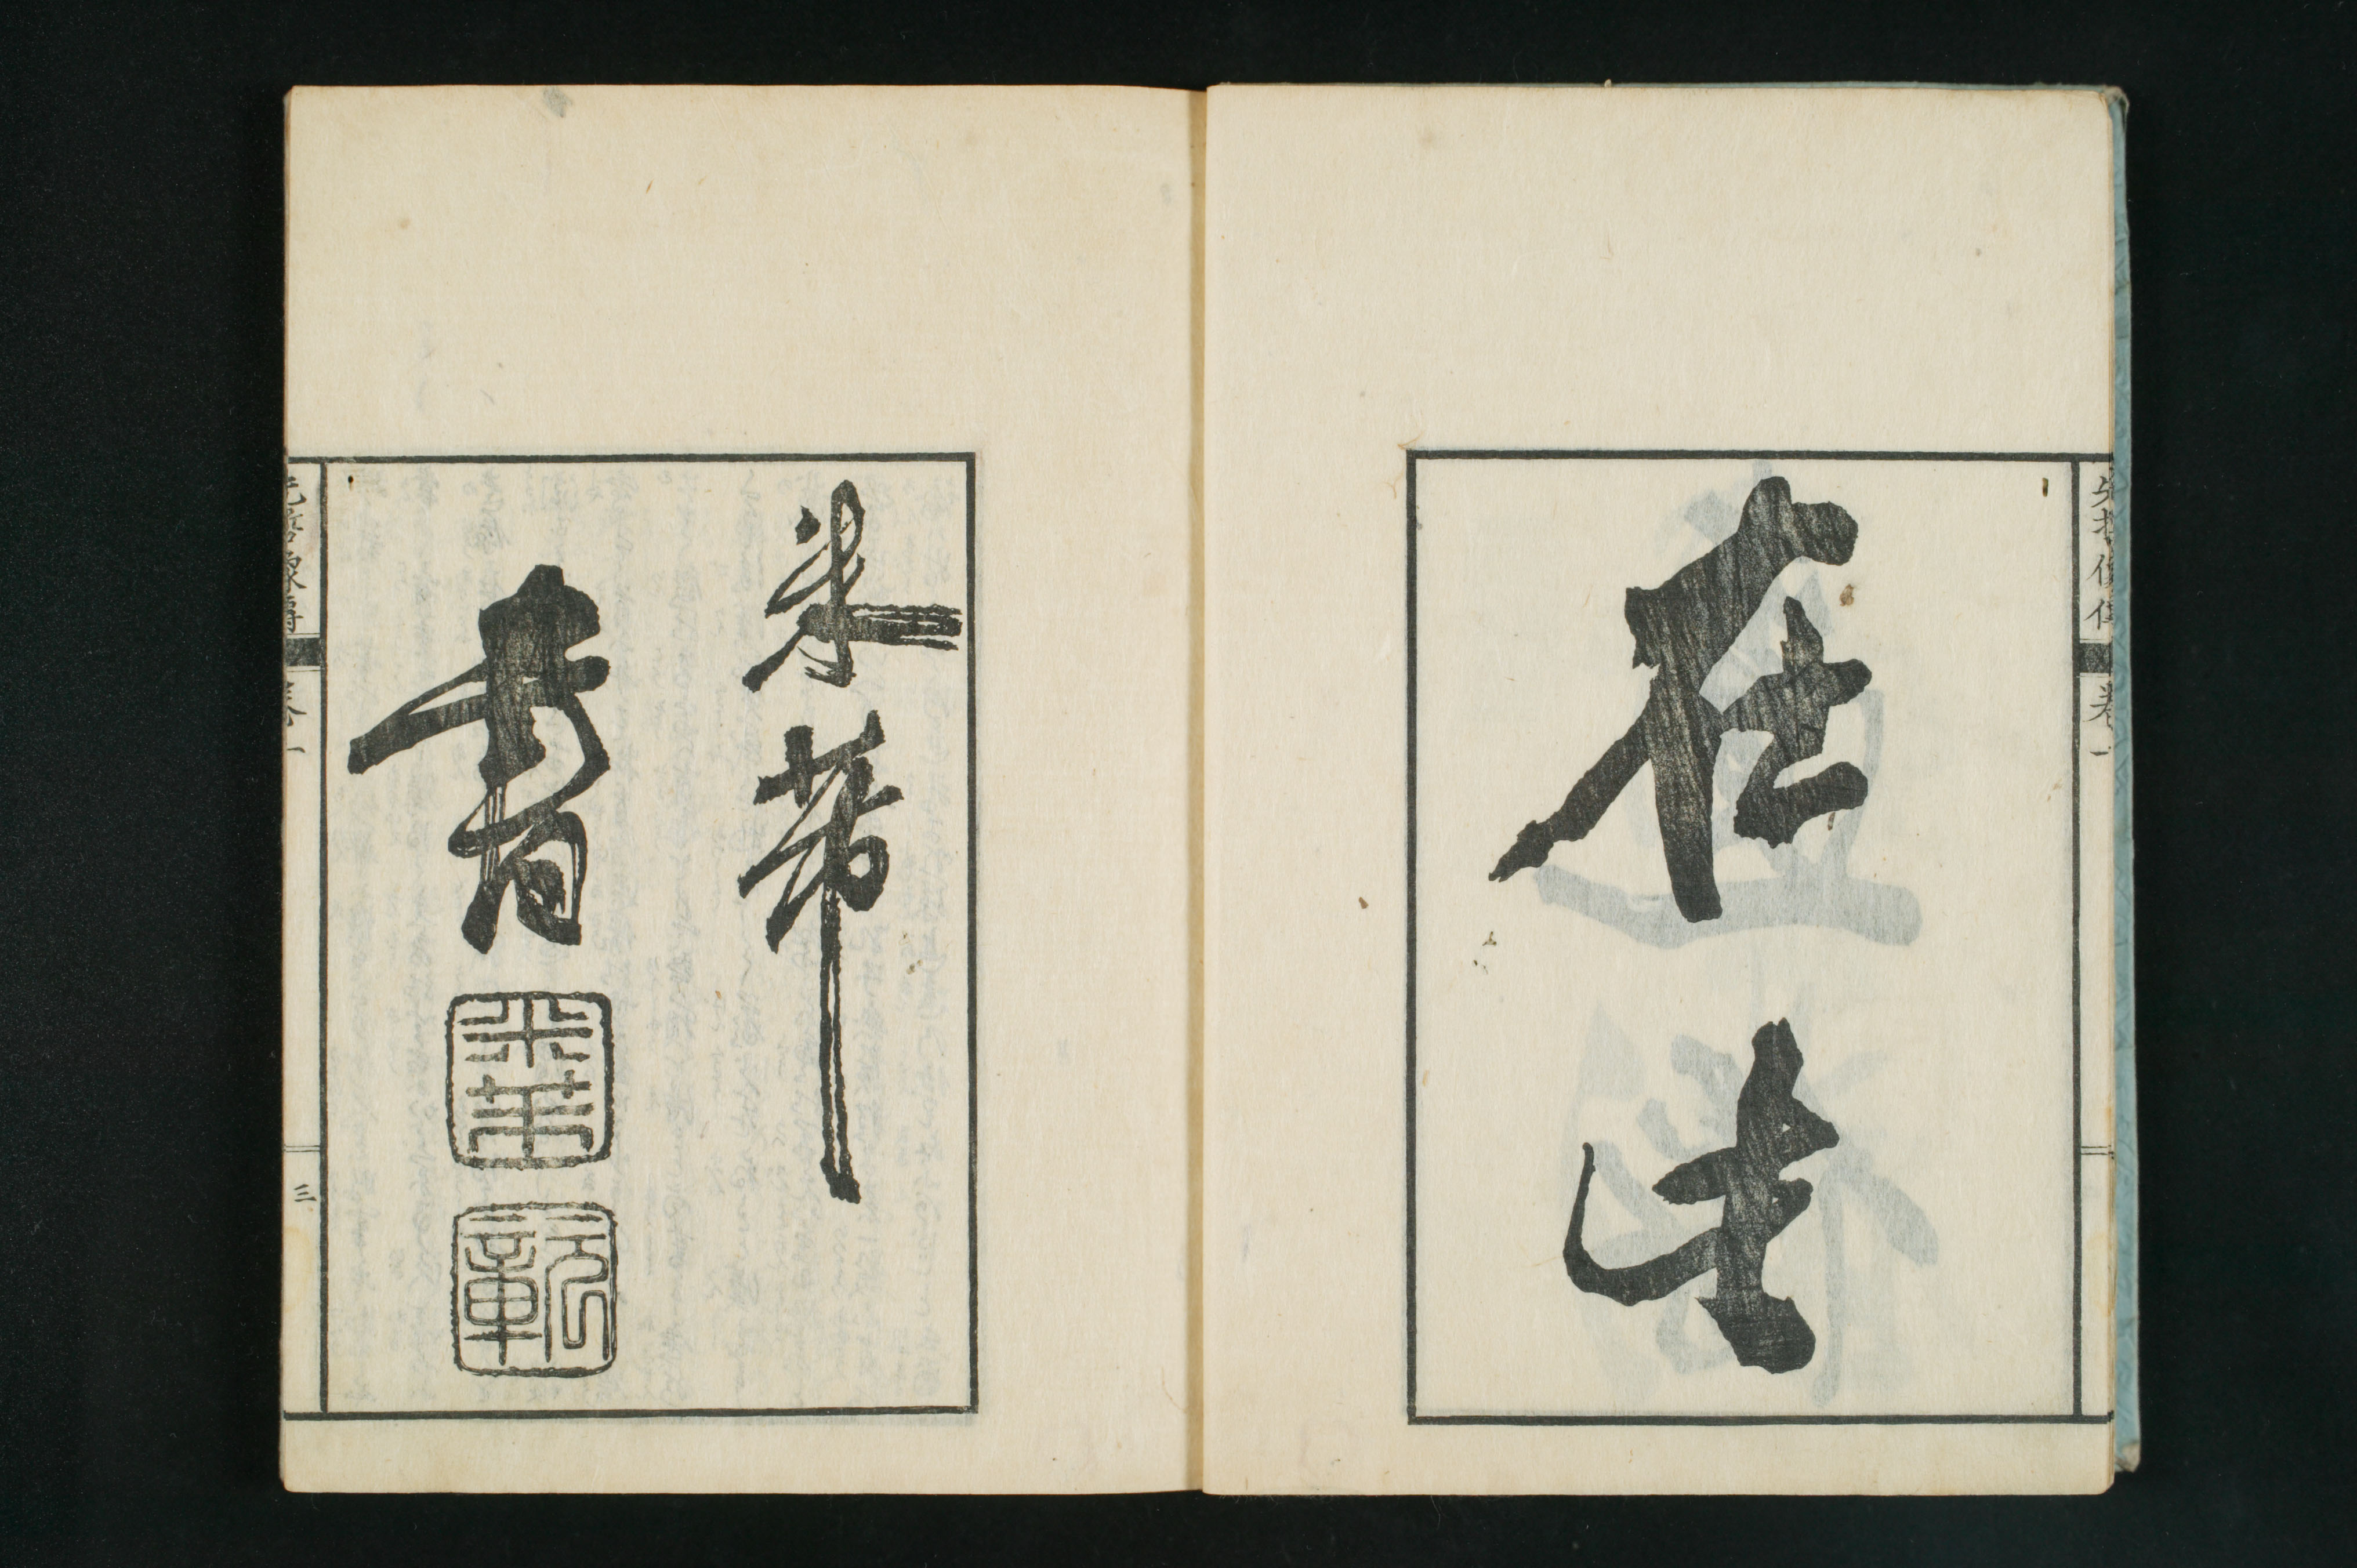 先哲像傳 卷一
在此
米芾
書
米芾
元章
先哲像傳 卷一 三